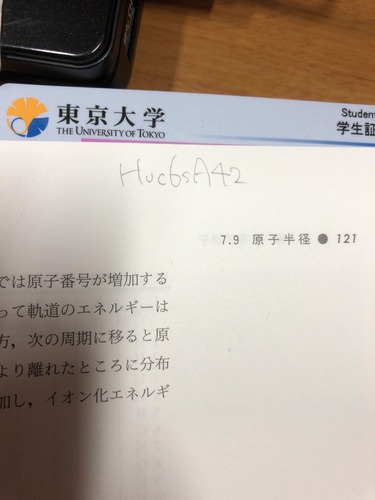 東京大学
THE UNIVERSITY OF TOKYO
Student
学生証
Huc6sA42
7.9 原子半径 ● 121
では原子番号が増加する
って軌道のエネルギーは
方，次の周期に移ると原
より離れたところに分布
加し，イオン化エネルギ